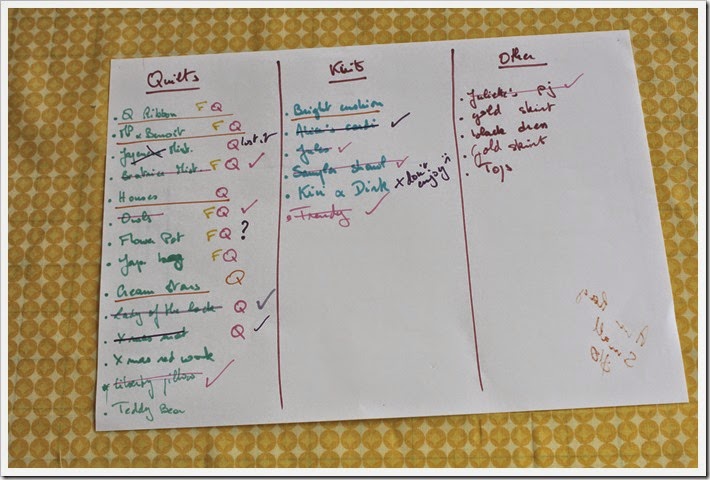 Quilts
• Q Ribbon F Q
• MP & Benoit F Q
• Mist. Q lost it
• Beatrice Mist. F Q ✓
• Houses Q
• Owls F Q ✓
• Flower Pot F Q ?
• bag F Q
• Cream Stars Q
• Lady of the lake Q ✓
• Xmas mat Q ✓
• Xmas red work
• Liberty pillow ✓
• Teddy Bear
Knits
• Bright cushion
• Alice's cardi ✓
• Jules ✓
• Sampler shawl ✓
• Kiri & Dirk x don't enjoy it
• Trendy ✓
Other
• Juliette's pj ✓
• gold skirt
• black dress
• Gold skirt
• Tops